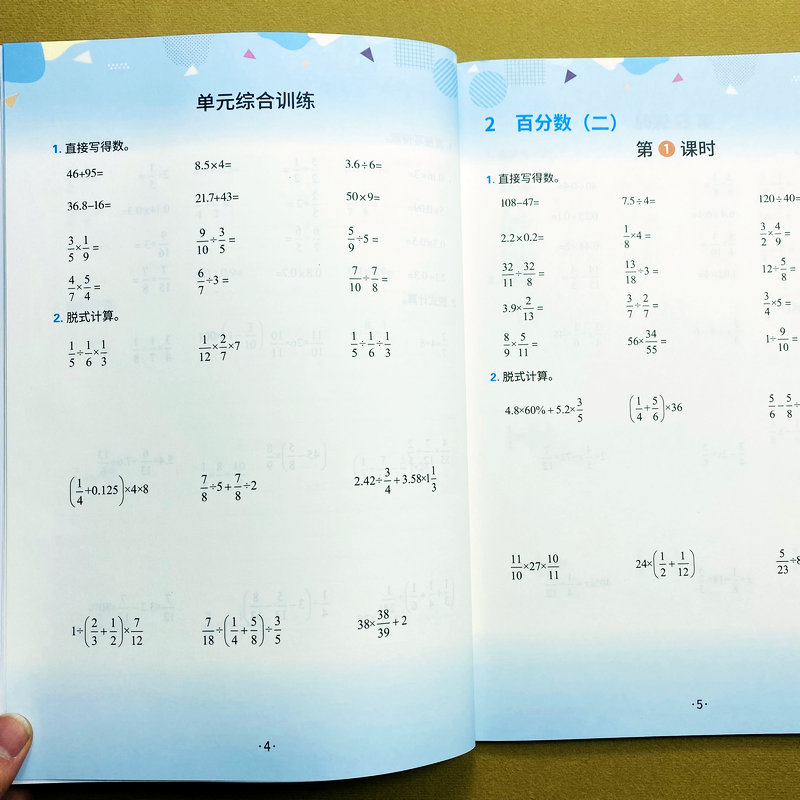 单元综合训练
1. 直接写得数。
46+95= 8.5×4= 3.6÷6=
36.8−16= 21.7+43= 50×9=
3/5×1/9= 9/10÷3/5= 5/9÷5=
4/7×5/4= 6/7÷3= 7/10÷7/8=
2. 脱式计算。
1/5÷1/6×1/3 1/12×2/7×7 1/5÷1/6÷1/3
(1/4+0.125)×4×8 7/8÷5+7/8÷2 2.42÷3/4+3.58×1 1/3
1÷(2/3+1/2)×7/12 7/18÷(1/4+5/8)÷3/5 38×38/39+2
·4·
2 百分数（二）
第1课时
1. 直接写得数。
108−47= 7.5÷4= 120÷40=
2.2×0.2= 1/8×4= 3/2×4/9=
32/11÷32/8= 13/18÷3= 12÷5/8=
3.9×2/13= 3/7÷2/7= 3/4×5=
8/9×5/11= 56×34/55= 1÷9/10=
2. 脱式计算。
4.8×60%+5.2×3/5 (1/4+5/6)×36 5/6−5/8÷
11/10×27×10/11 24×(1/2+1/12) 5/23÷8
·5·